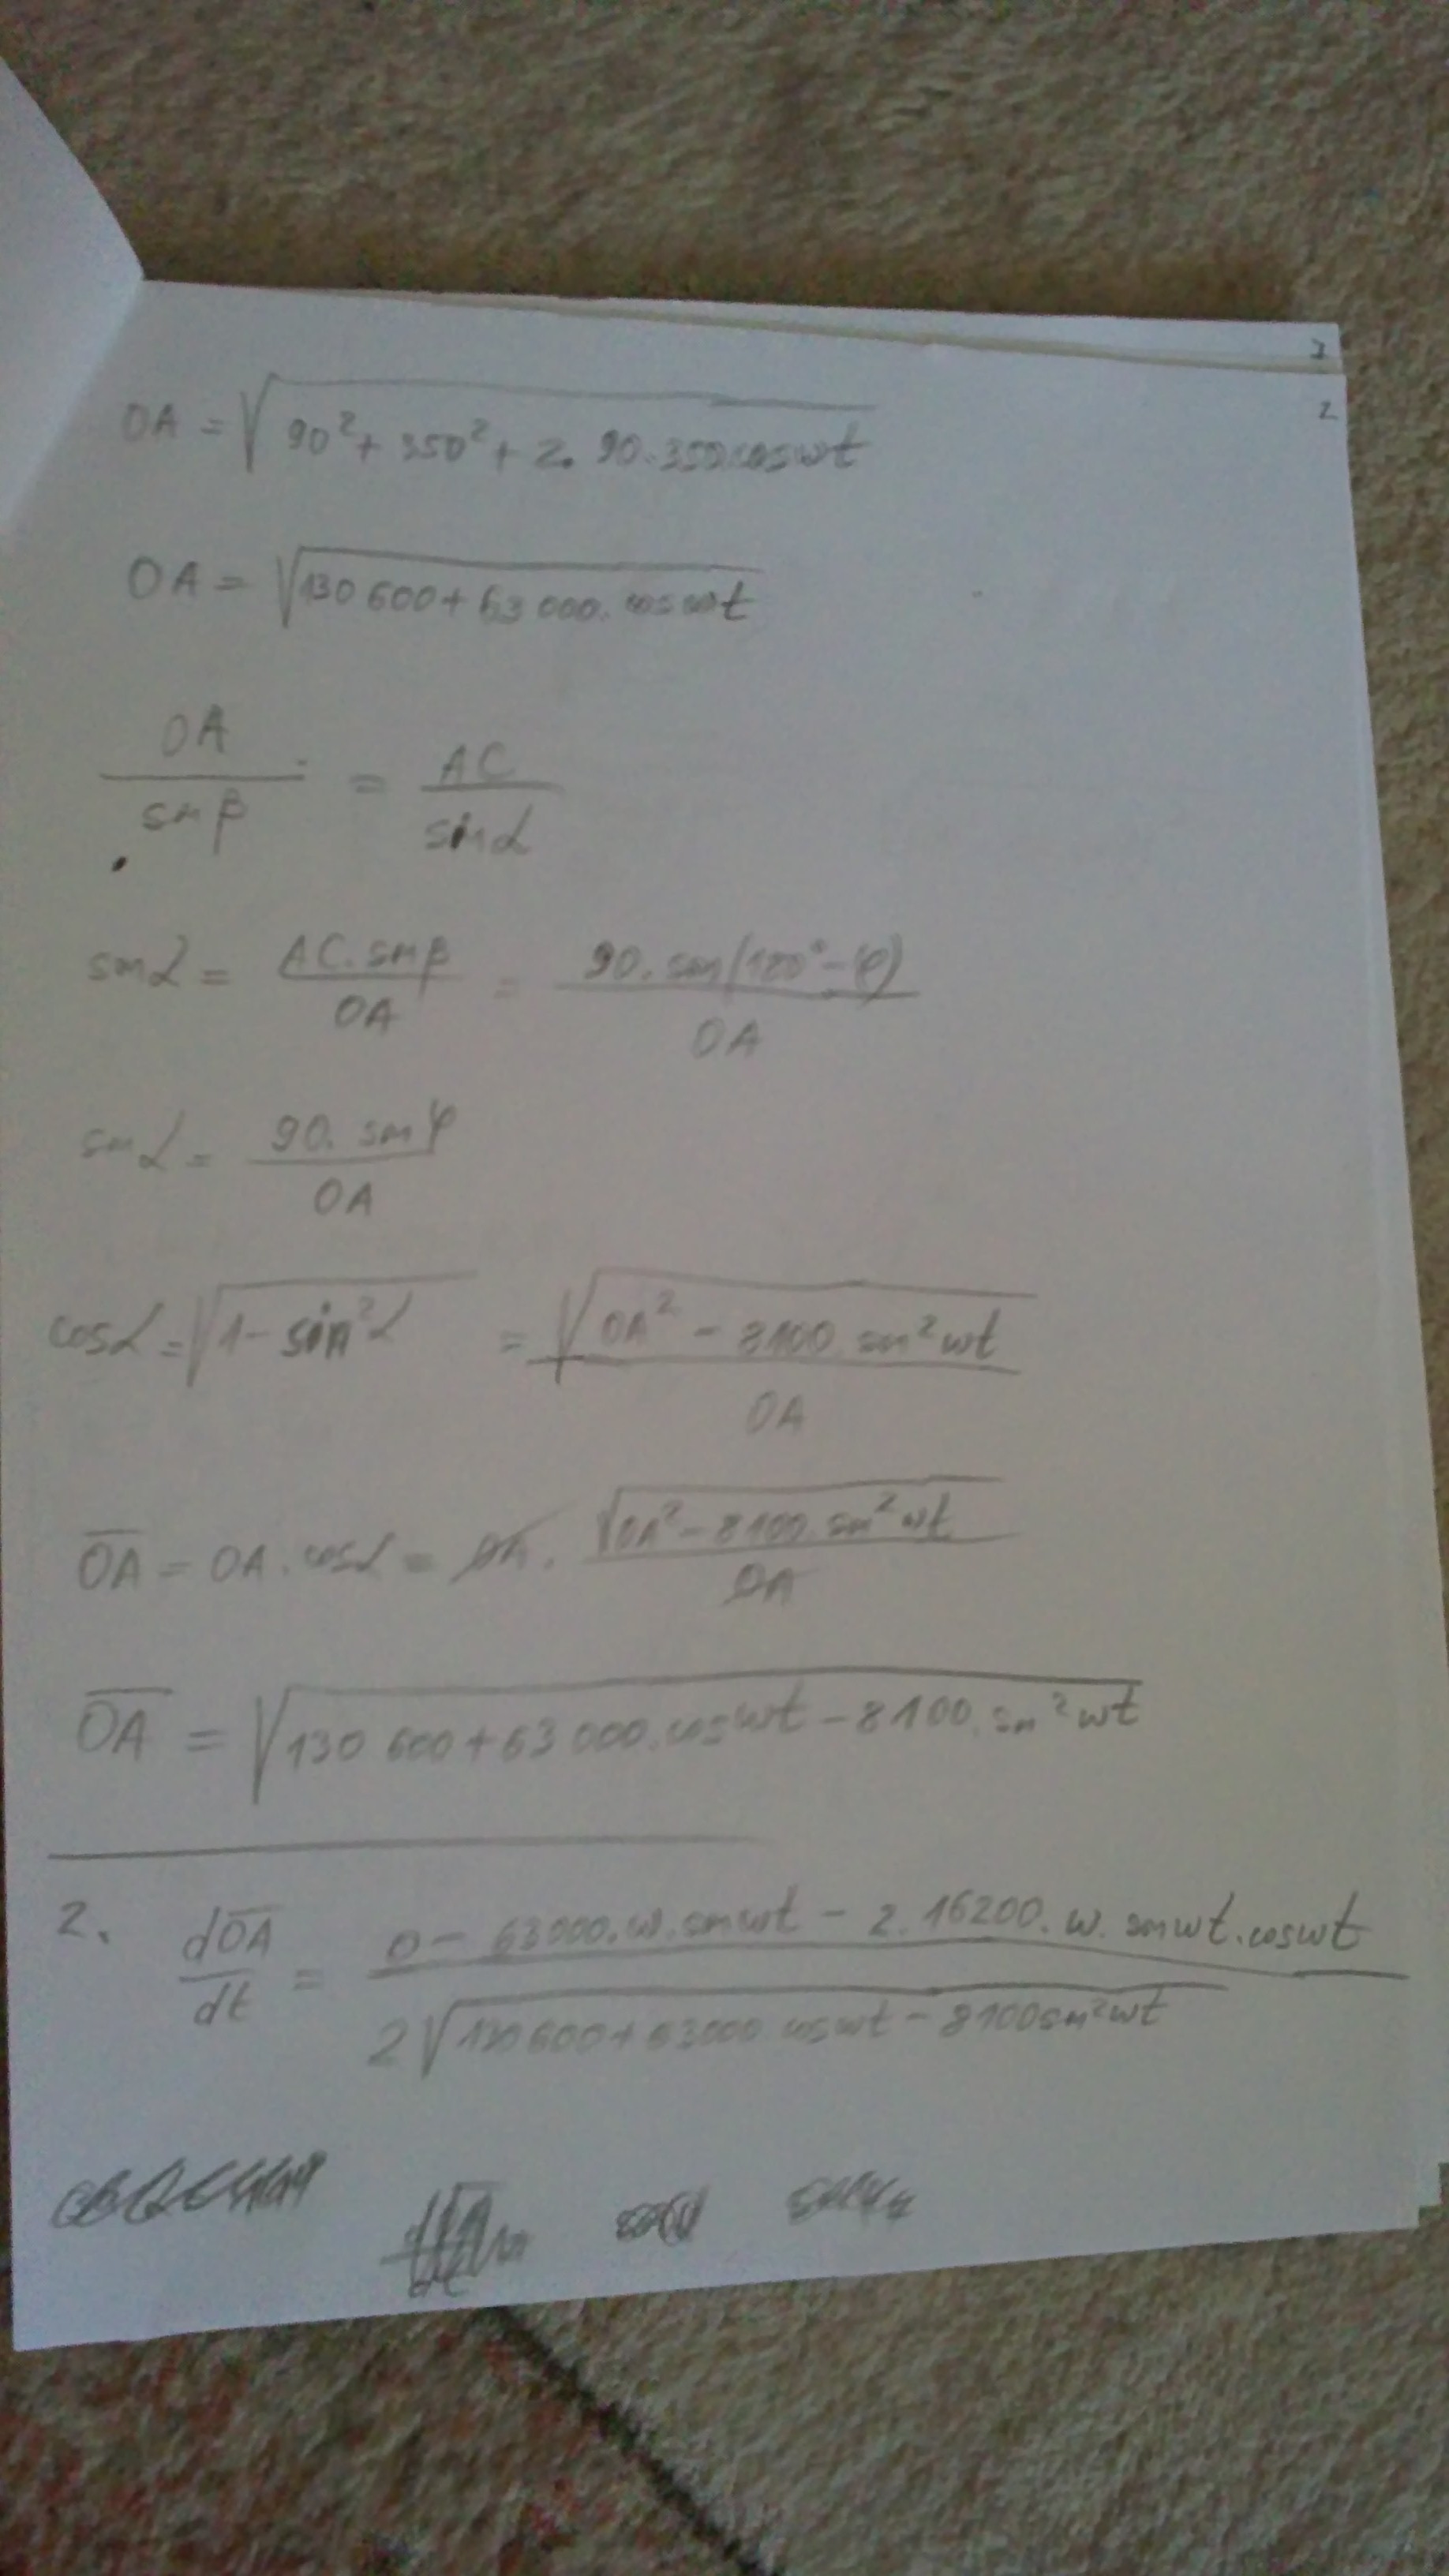 3
2
OA = √(90² + 350² + 2. 90. 350. cos wt)
OA = √(130 600 + 63 000. cos wt)
OA / sin β = AC / sin α
sin α = AC. sin β / OA = 90. sin(180° - φ) / OA
sin α = 90. sin φ / OA
cos α = √(1 - sin² α) = √(OA² - 8100 sin² wt) / OA
O̅A̅ = OA. cos α = OA. √(OA² - 8100. sin² wt) / OA
O̅A̅ = √(130 600 + 63 000. cos wt - 8100. sin² wt)
2. dO̅A̅ / dt = 0 - 63000. w. sin wt - 2. 16200. w. sin wt. cos wt / 2√(130600 + 63000 cos wt - 8100 sin² wt)